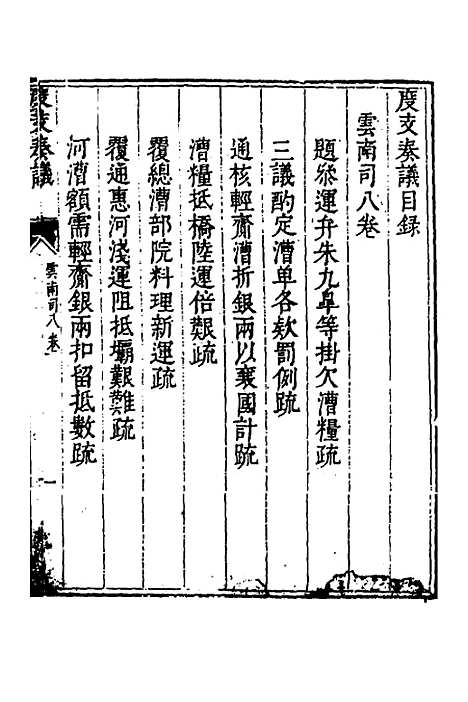 度支奏議目録
雲南司八卷
題參運弁朱九臯等掛欠漕糧疏
三議酌定漕单各欵罰例疏
通核輕齎漕折銀兩以襄國計疏
漕糧抵橋陸運倍艱疏
覆總漕部院料理新運疏
覆通惠河淺運阻抵壩艱難疏
河漕額需輕齎銀兩扣留抵數疏
度支奏議
雲南司八卷
一